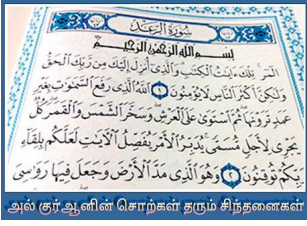 سُورَةُ الرَّعْدِ
بِسْمِ اللَّهِ الرَّحْمَٰنِ الرَّحِيمِ
الٓمٓر ۚ تِلْكَ ءَايَٰتُ الْكِتَٰبِ ۗ وَالَّذِىٓ أُنزِلَ إِلَيْكَ مِن رَّبِّكَ الْحَقُّ
وَلَٰكِنَّ أَكْثَرَ النَّاسِ لَا يُؤْمِنُونَ ١ اللَّهُ الَّذِى رَفَعَ السَّمَٰوَٰتِ بِغَيْرِ
عَمَدٍ تَرَوْنَهَا ۖ ثُمَّ اسْتَوَىٰ عَلَى الْعَرْشِ ۖ وَسَخَّرَ الشَّمْسَ وَالْقَمَرَ ۖ كُلٌّ
يَجْرِى لِأَجَلٍ مُّسَمًّى ۚ يُدَبِّرُ الْأَمْرَ يُفَصِّلُ الْءَايَٰتِ لَعَلَّكُم بِلِقَآءِ
رَبِّكُمْ تُوقِنُونَ ٢ وَهُوَ الَّذِى مَدَّ الْأَرْضَ وَجَعَلَ فِيهَا رَوَٰسِىَ
அல் குர்ஆனின் சொற்கள் தரும் சிந்தனைகள்